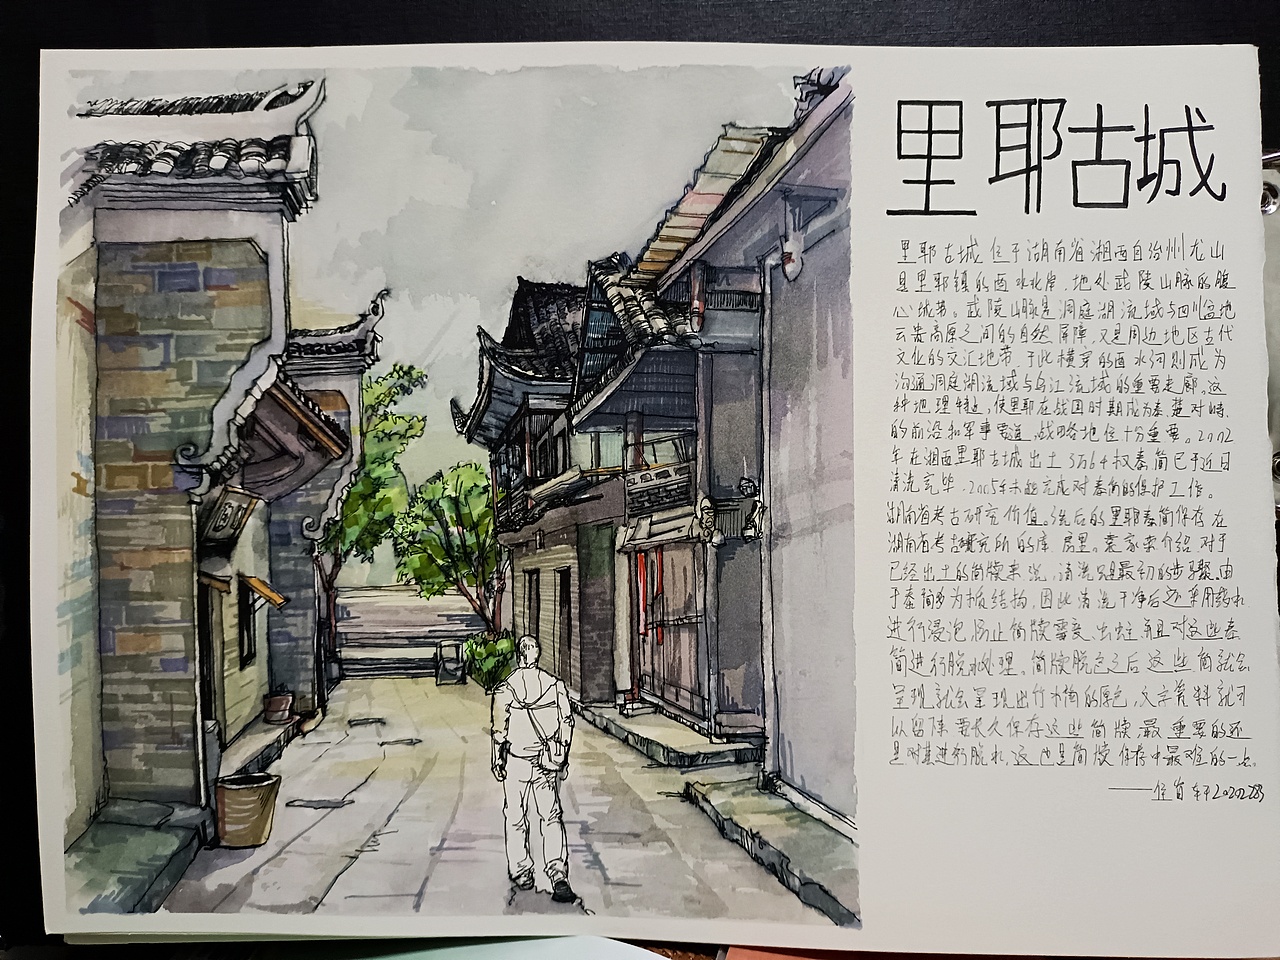 里耶古城
里耶古城位于湖南省湘西自治州龙山
县里耶镇的酉水北岸，地处武陵山脉的腹
心地带。武陵山脉是洞庭湖流域与四川盆地
云贵高原之间的自然屏障，又是周边地区古代
文化的交汇地带，于此横穿的酉水河则成为
沟通洞庭湖流域与乌江流域的重要走廊。这
种地理特征，使里耶在战国时期成为秦、楚对峙
的前沿和军事要道，战略地位十分重要。2002
年在湘西里耶古城出土3万多枚秦简已于近日
清洗完毕，2005年末起完成对秦简的保护工作。
湖南省考古研究价值。洗后的里耶秦简保存在
湖南省考古研究所的库房里。袁家荣介绍，对于
已经出土的简牍来说，清洗只是最初的步骤，由
于秦简多为板结构，因此清洗干净后还要用药水
进行浸泡，防止简牍霉变、出蛀，并且对这些秦
简进行脱水处理。简牍脱色之后这些简就会
呈现就会呈现出竹木简的原色，文字资料就可
以留下。要长久保存这些简牍最重要的还
是对其进行脱水，这也是简牍保存中最难的一点。